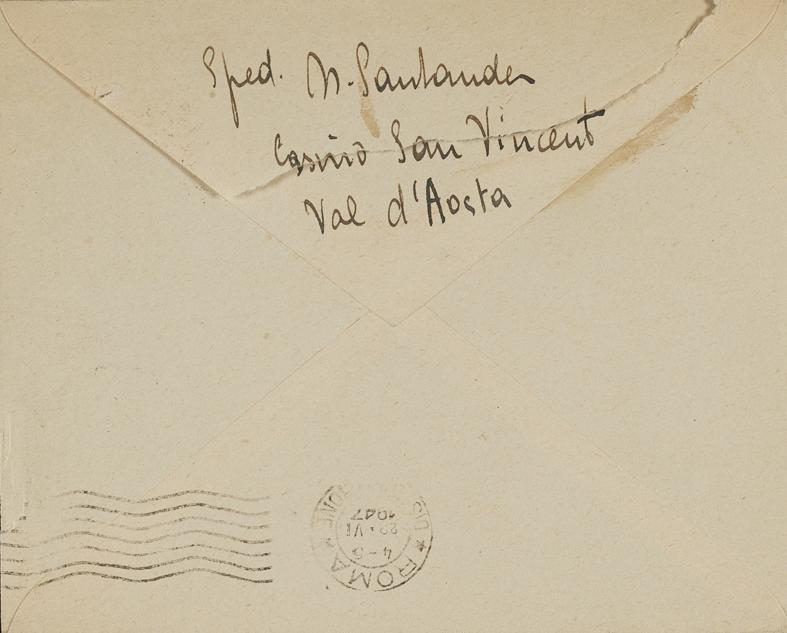 Sped. N. Santander
Casinò San Vincent
Val d'Aosta
ROMA
4-5
VI
1947